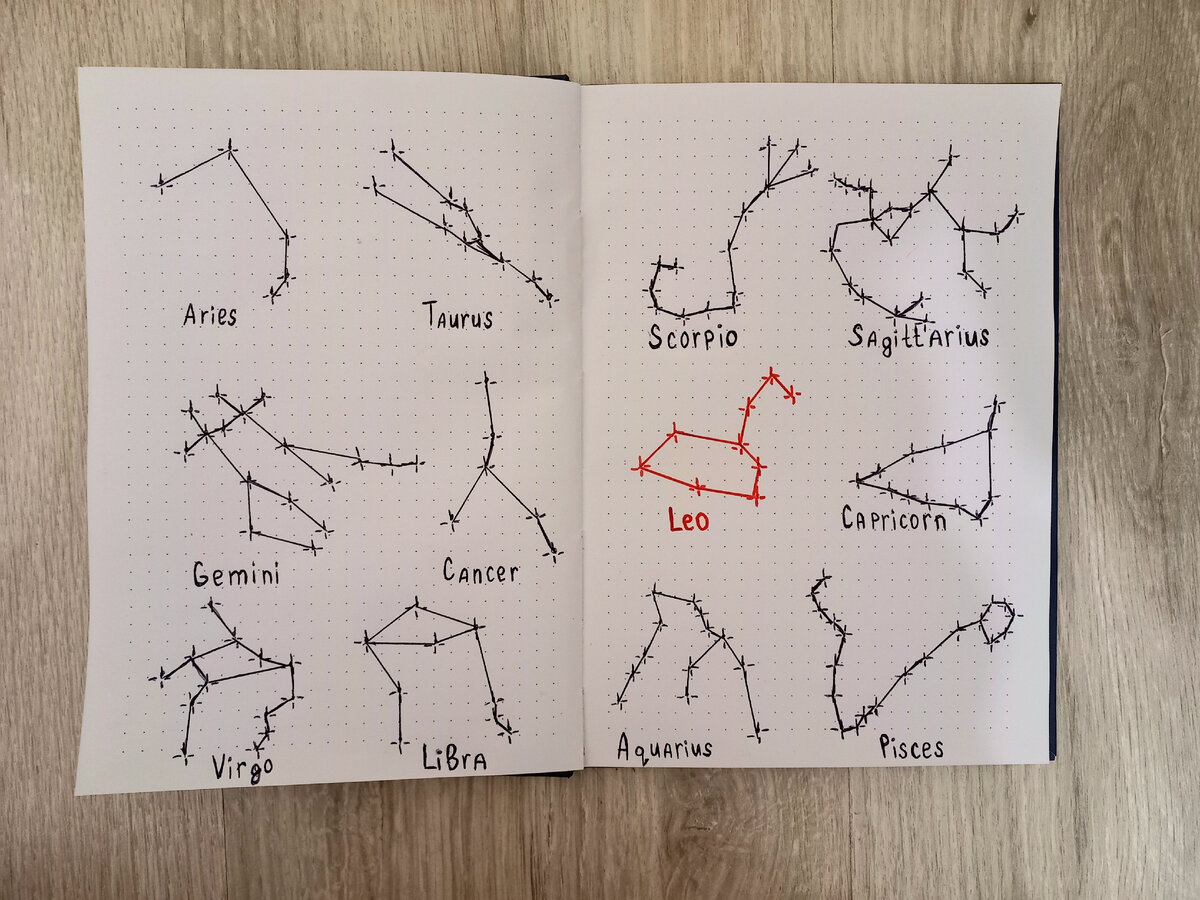 Aries
Taurus
Gemini
Cancer
Virgo
LiBra
Scorpio
Sagittarius
Leo
Capricorn
Aquarius
Pisces